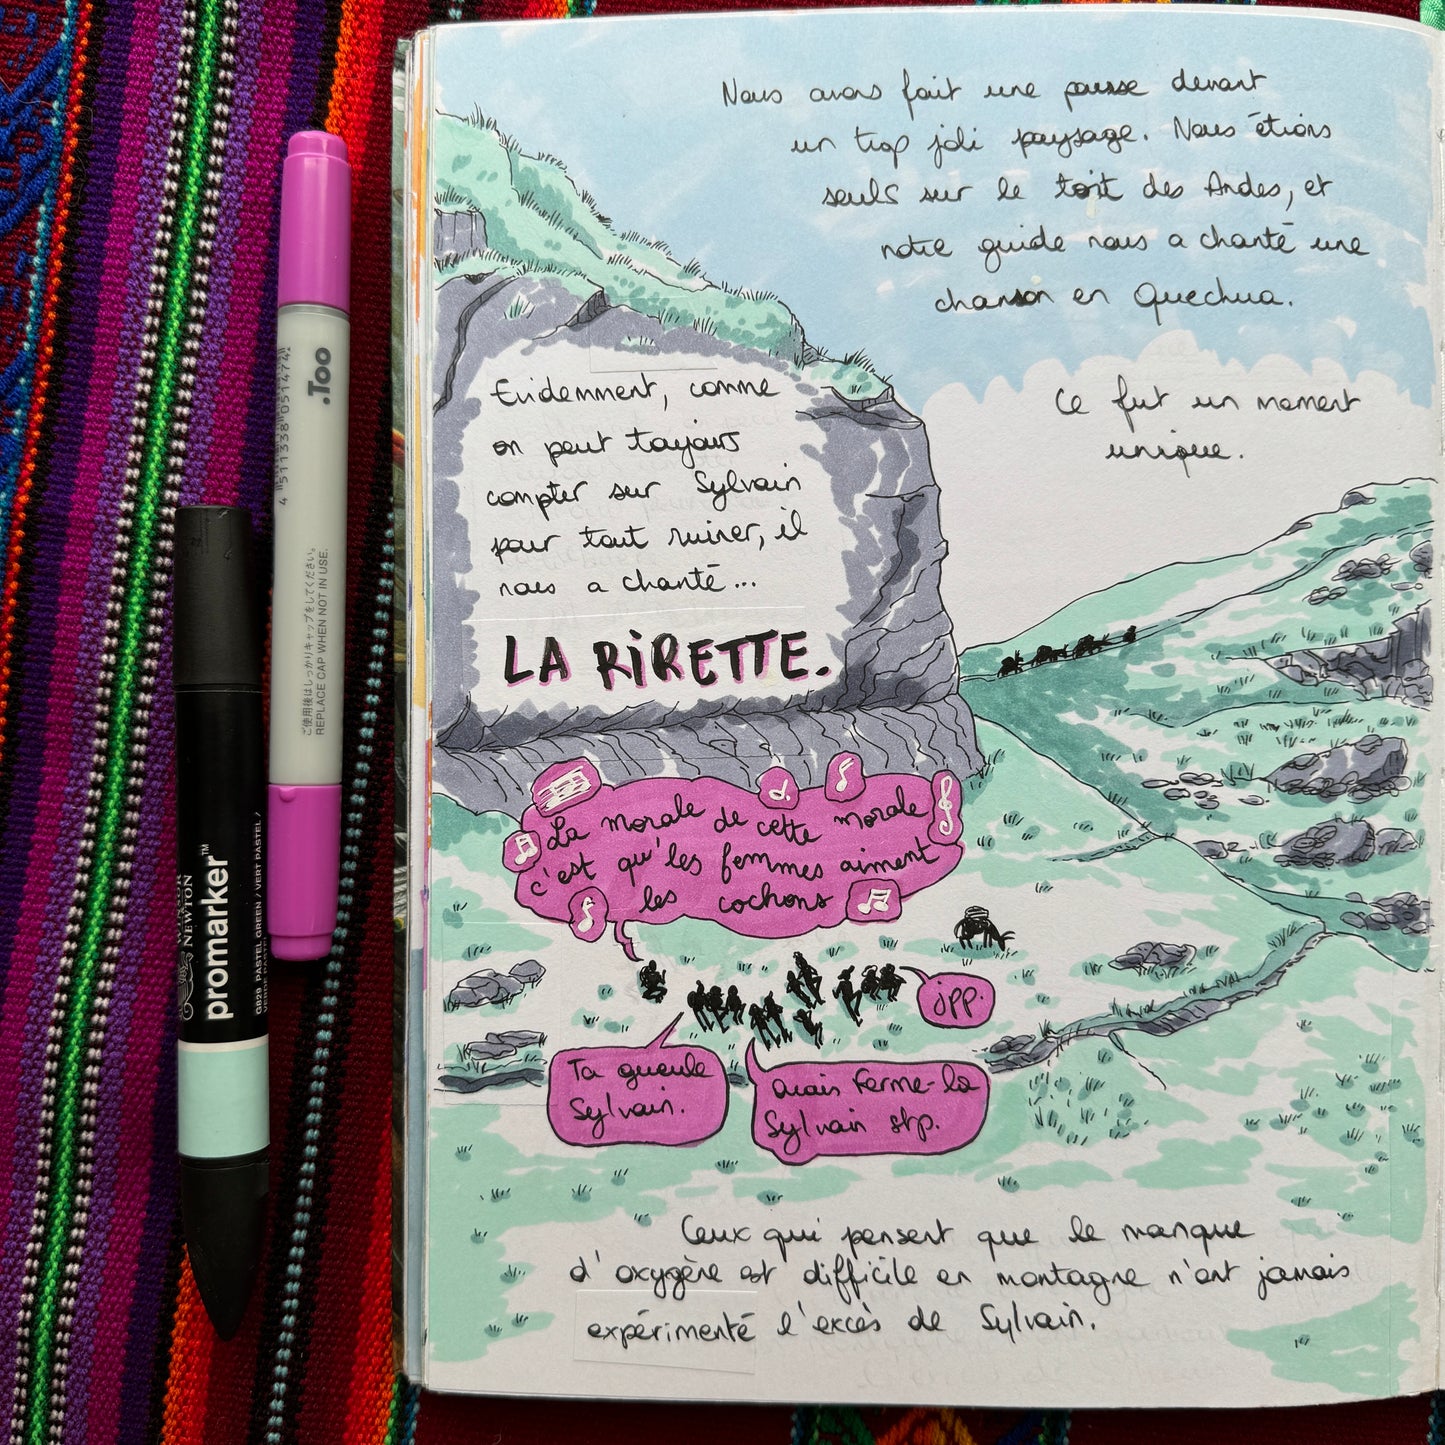 Nous avons fait une pause devant
un trop joli paysage. Nous étions
seuls sur le toit des Andes, et
notre guide nous a chanté une
chanson en Quechua.
Ce fut un moment
unique.
Evidemment, comme
on peut toujours
compter sur Sylvain
pour tout ruiner, il
nous a chanté...
LA RIRETTE.
La morale de cette morale
c'est qu'les femmes aiment
les cochons
jpp.
Ta gueule
Sylvain.
ouais Ferme-la
Sylvain stp.
Ceux qui pensent que le manque
d'oxygène est difficile en montagne n'ont jamais
expérimenté l'excès de Sylvain.
.Too
4 511338 051474
ご使用後はしっかりキャップをしてください。
REPLACE CAP WHEN NOT IN USE.
WINSOR
& NEWTON
promarker™
G829 PASTEL GREEN / VERT PASTEL /